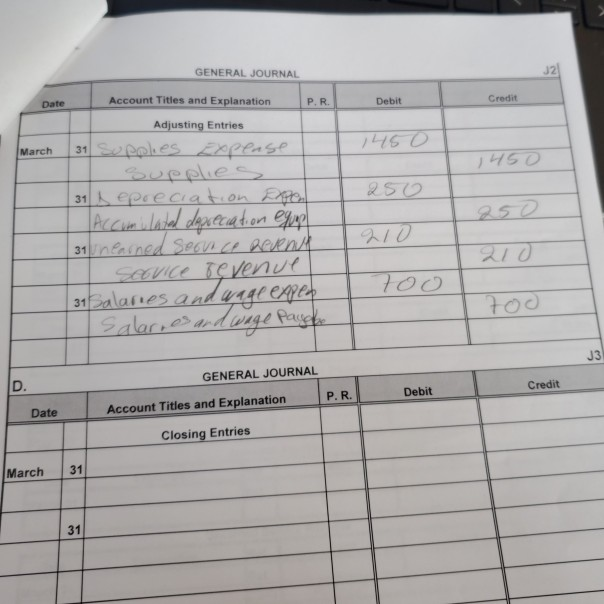 GENERAL JOURNAL J2
Date Account Titles and Explanation P. R. Debit Credit
Adjusting Entries
March 31 Supplies Expense 1450
Supplies 1450
31 Depreciation Expen 250
Accumilated depreciation equip 250
31 unearned Service Revenue 210
Service revenue 210
31 Salaries and wage expen 700
Salaries and wage Payable 700
D. GENERAL JOURNAL J3
Date Account Titles and Explanation P. R. Debit Credit
Closing Entries
March 31
31